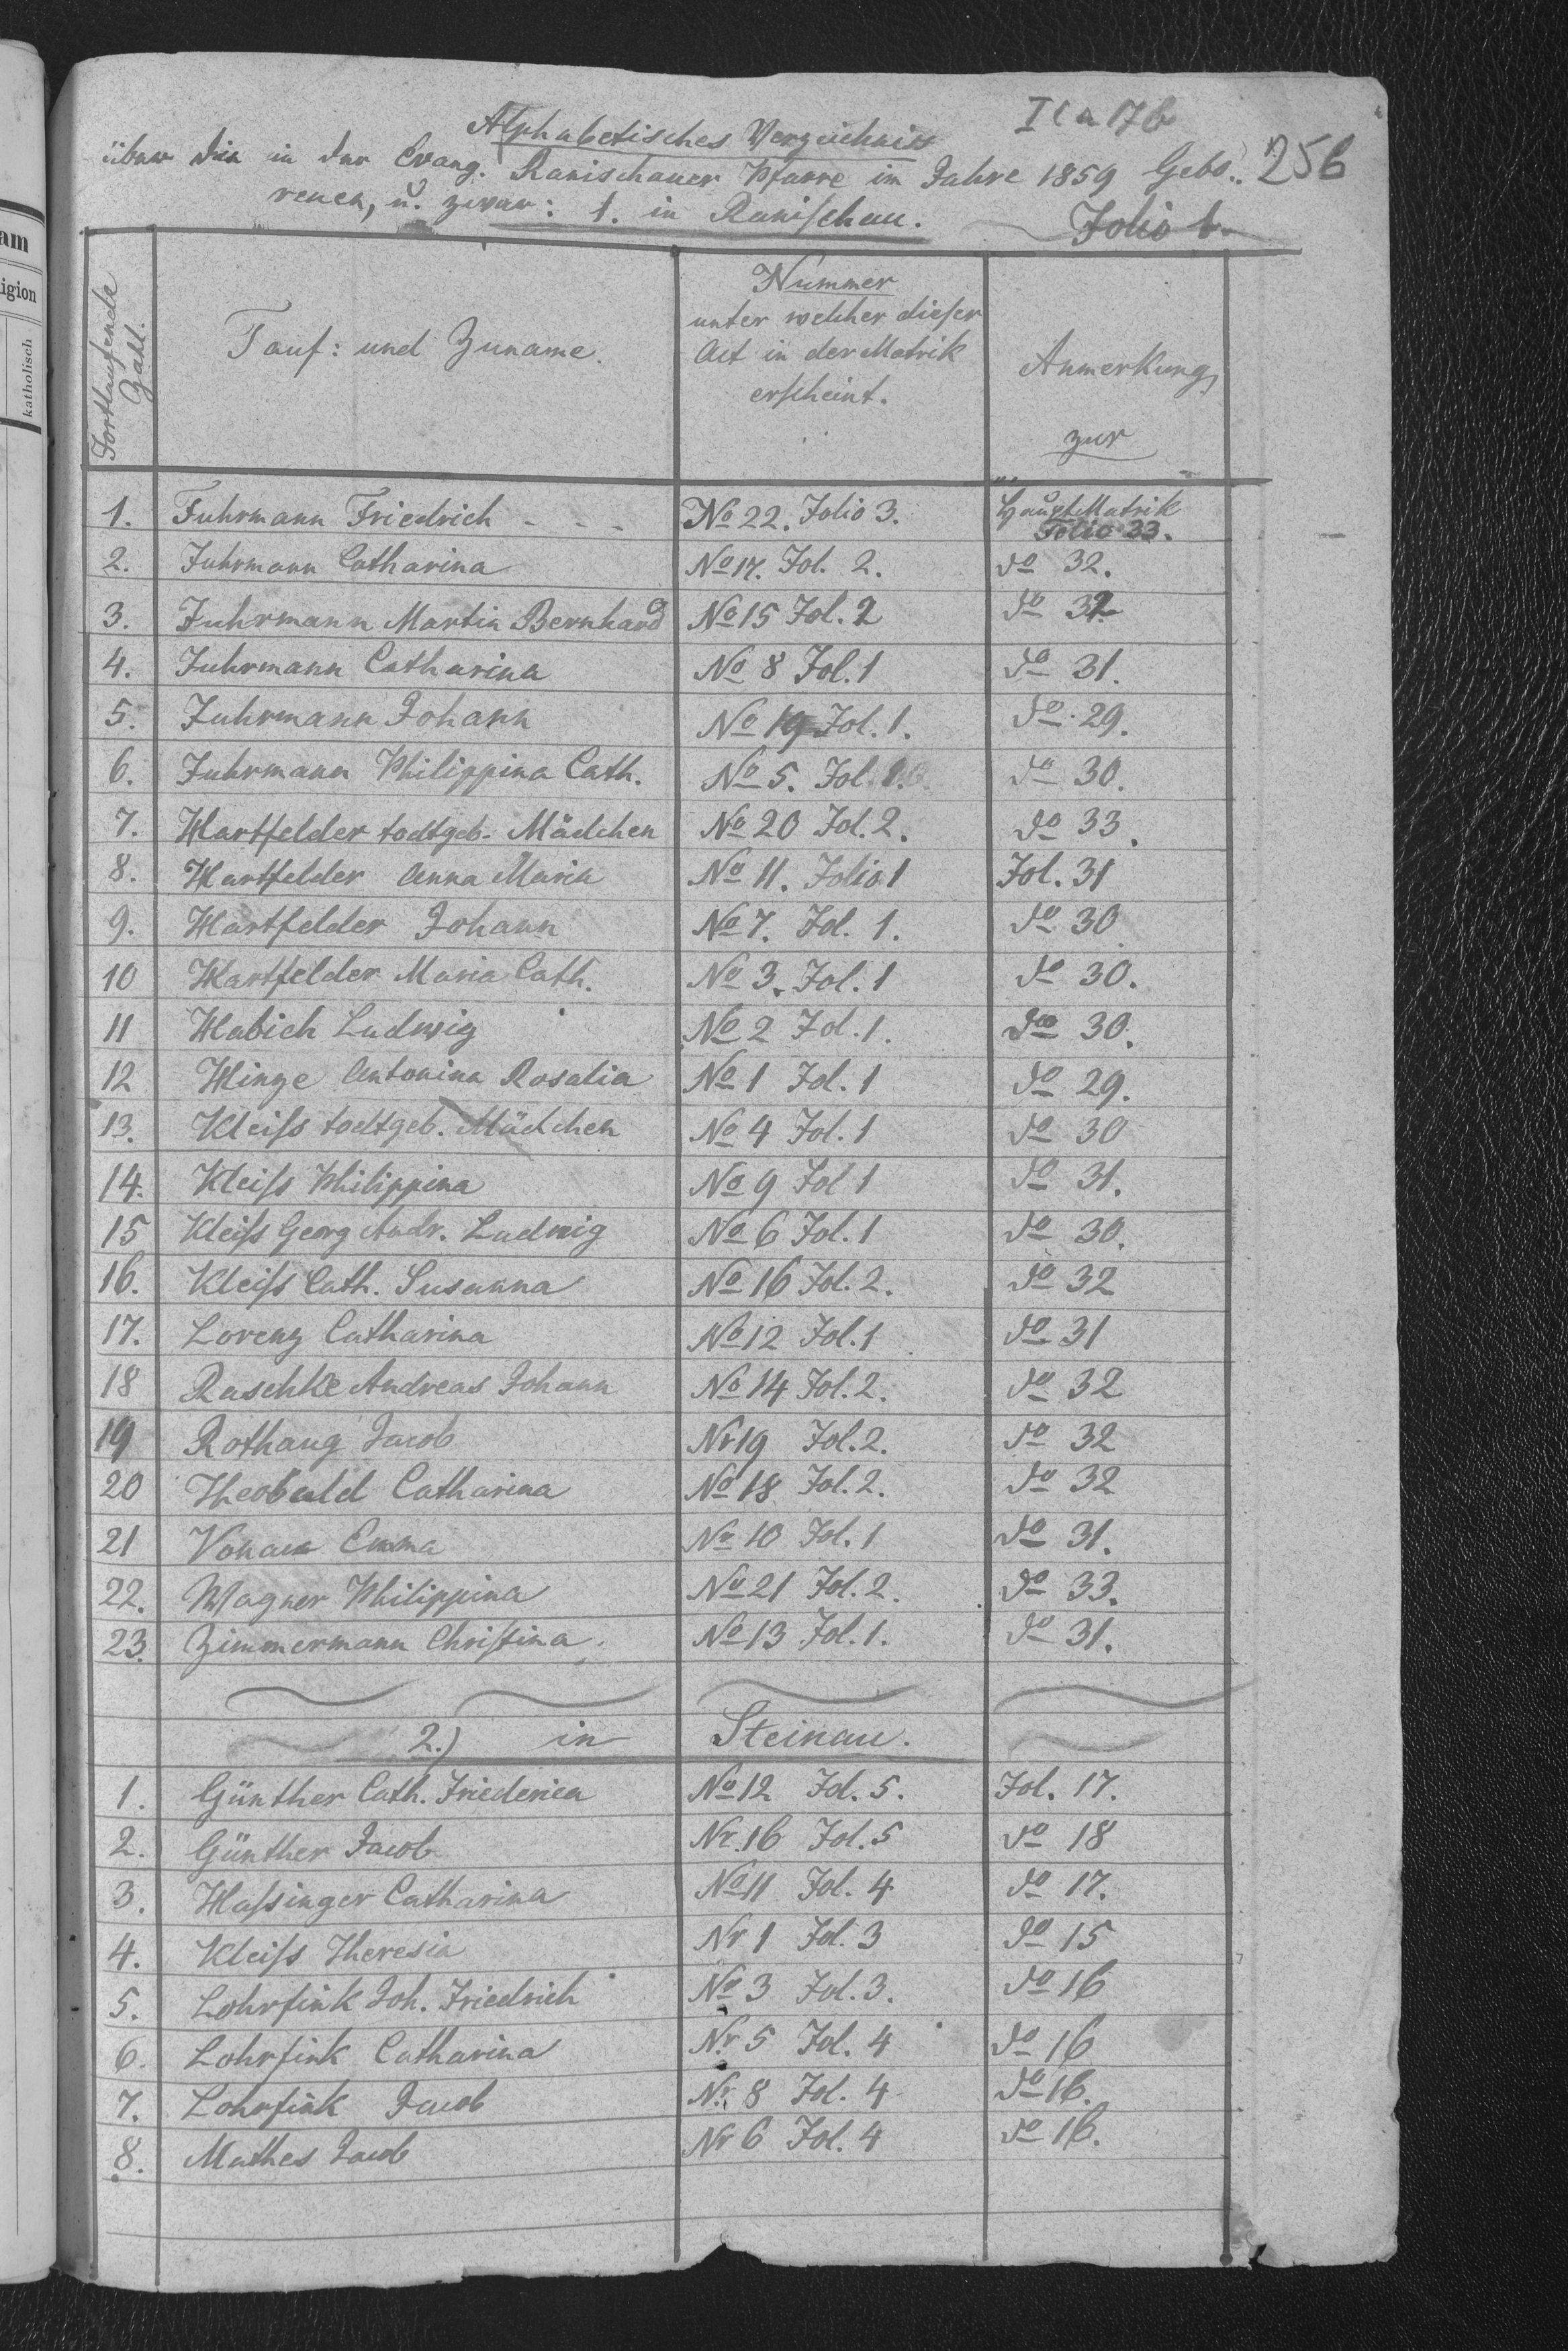 Alphabetisches Verzeichniss
I C a 17 b
256
über die in der Evang. Ranischauer Pfarre im Jahre 1859 Gebo-
renen, u. zwar: 1. in Ranischau.
Folio 1.
am
igion
katholisch
Fortlaufende Zahl.
Tauf: und Zuname.
Nummer
unter welcher dieser
Act in der Matrik
erscheint.
Anmerkung
zur
1. Fuhrmann Friedrich - - - No 22. Folio 3. Haupt Matrik
Folio 33.
2. Fuhrmann Catharina No 17. Fol. 2. do 32.
3. Fuhrmann Martin Bernhard No 15 Fol. 2 do 32.
4. Fuhrmann Catharina No 8 Fol. 1 do 31.
5. Fuhrmann Johann No 19 Fol. 1. do 29.
6. Fuhrmann Philippina Cath. No 5. Fol. 1. do 30.
7. Hartfelder todtgeb. Mädchen No 20 Fol. 2. do 33.
8. Hartfelder Anna Maria No 11. Folio 1 Fol. 31
9. Hartfelder Johann No 7. Fol. 1. do 30
10 Hartfelder Maria Cath. No 3. Fol. 1 do 30.
11 Habich Ludwig No 2 Fol. 1. do 30.
12 Hinze Antonina Rosalia No 1 Fol. 1 do 29.
13. Kleiss todtgeb. Mädchen No 4 Fol. 1 do 30
14. Kleiss Philippina No 9 Fol 1 do 31.
15 Kleiss Georg Andr. Ludwig No 6 Fol. 1 do 30.
16. Kleiss Cath. Susanna No 16 Fol. 2. do 32
17. Lorenz Catharina No 12 Fol. 1 do 31
18 Raschke Andreas Johann No 14 Fol. 2. do 32
19 Rothaug Jacob Nr 19 Fol. 2. do 32
20 Theobald Catharina No 18 Fol. 2. do 32
21 Vonau Emma No 10 Fol. 1 do 31.
22. Wagner Philippina No 21 Fol. 2. do 33.
23. Zimmermann Christina. No 13 Fol. 1. do 31.
2.) in Steinau.
1. Günther Cath. Friederica No 12 Fol. 5. Fol. 17.
2. Günther Jacob Nr. 16 Fol. 5 do 18
3. Hassinger Catharina No 11 Fol. 4 do 17.
4. Kleiss Theresia Nr 1 Fol. 3 do 15
5. Lohrfink Joh. Friedrich No 3 Fol. 3. do 16
6. Lohrfink Catharina Nr. 5 Fol. 4 do 16
7. Lohrfink Jacob Nr. 8 Fol. 4 do 16.
8. Mathes Jacob Nr 6 Fol. 4 do 16.